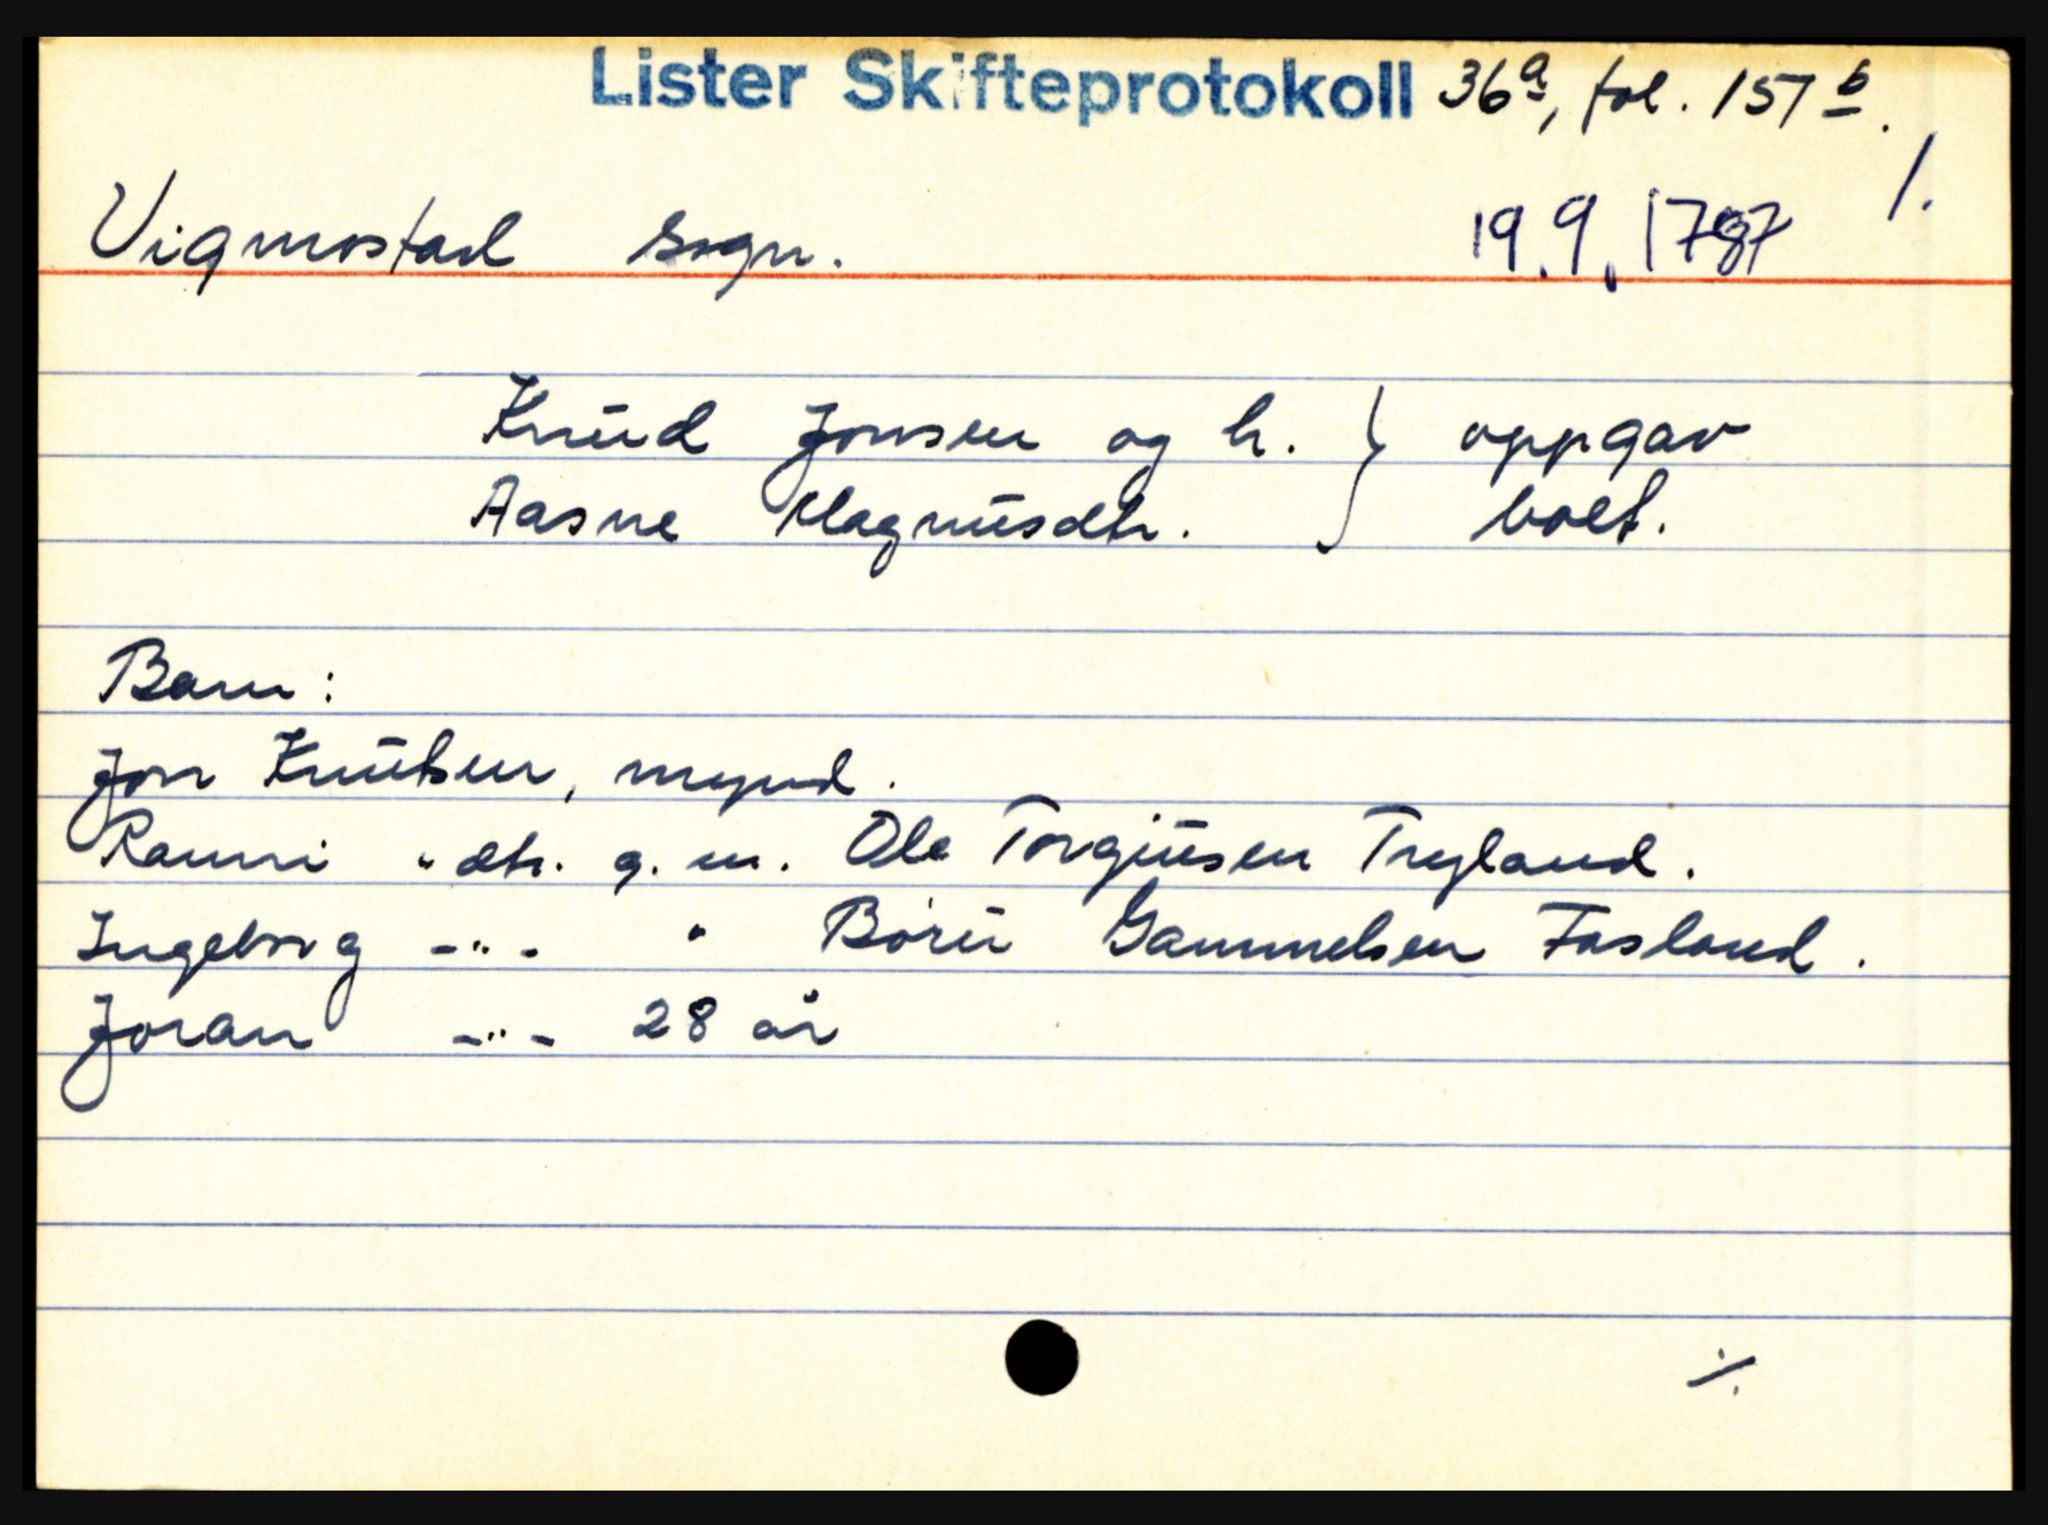 Lister Skifteprotokoll 36a, fol. 157 b.
1.
Vigmostad sogn. 19.9.1787
Knud Jonsen og h. } oppgav
Aasne Magnusdtr. boet.
Barn:
Jon Knutsen, mynd.
Ranni " dtr. g. m. Ole Torgiusen Tryland.
Ingeborg -"- " Børu Gammelsen Fasland.
Joran -"- 28 år
./.